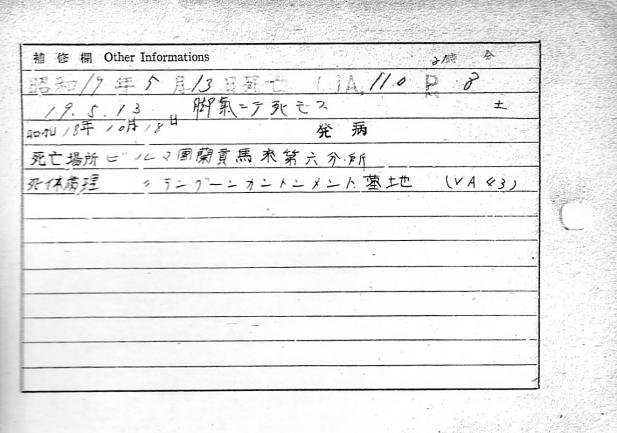 補修欄 Other Informations
時 分
昭和19年5月13日死亡 110 P 8
19.5.13 脚氣ニテ死亡ス
昭和18年10月18日 発病
死亡場所 ビルマ国蘭貢馬来第六分所
死体処理 〃 ラングーンカントンメント墓地 (VA43)